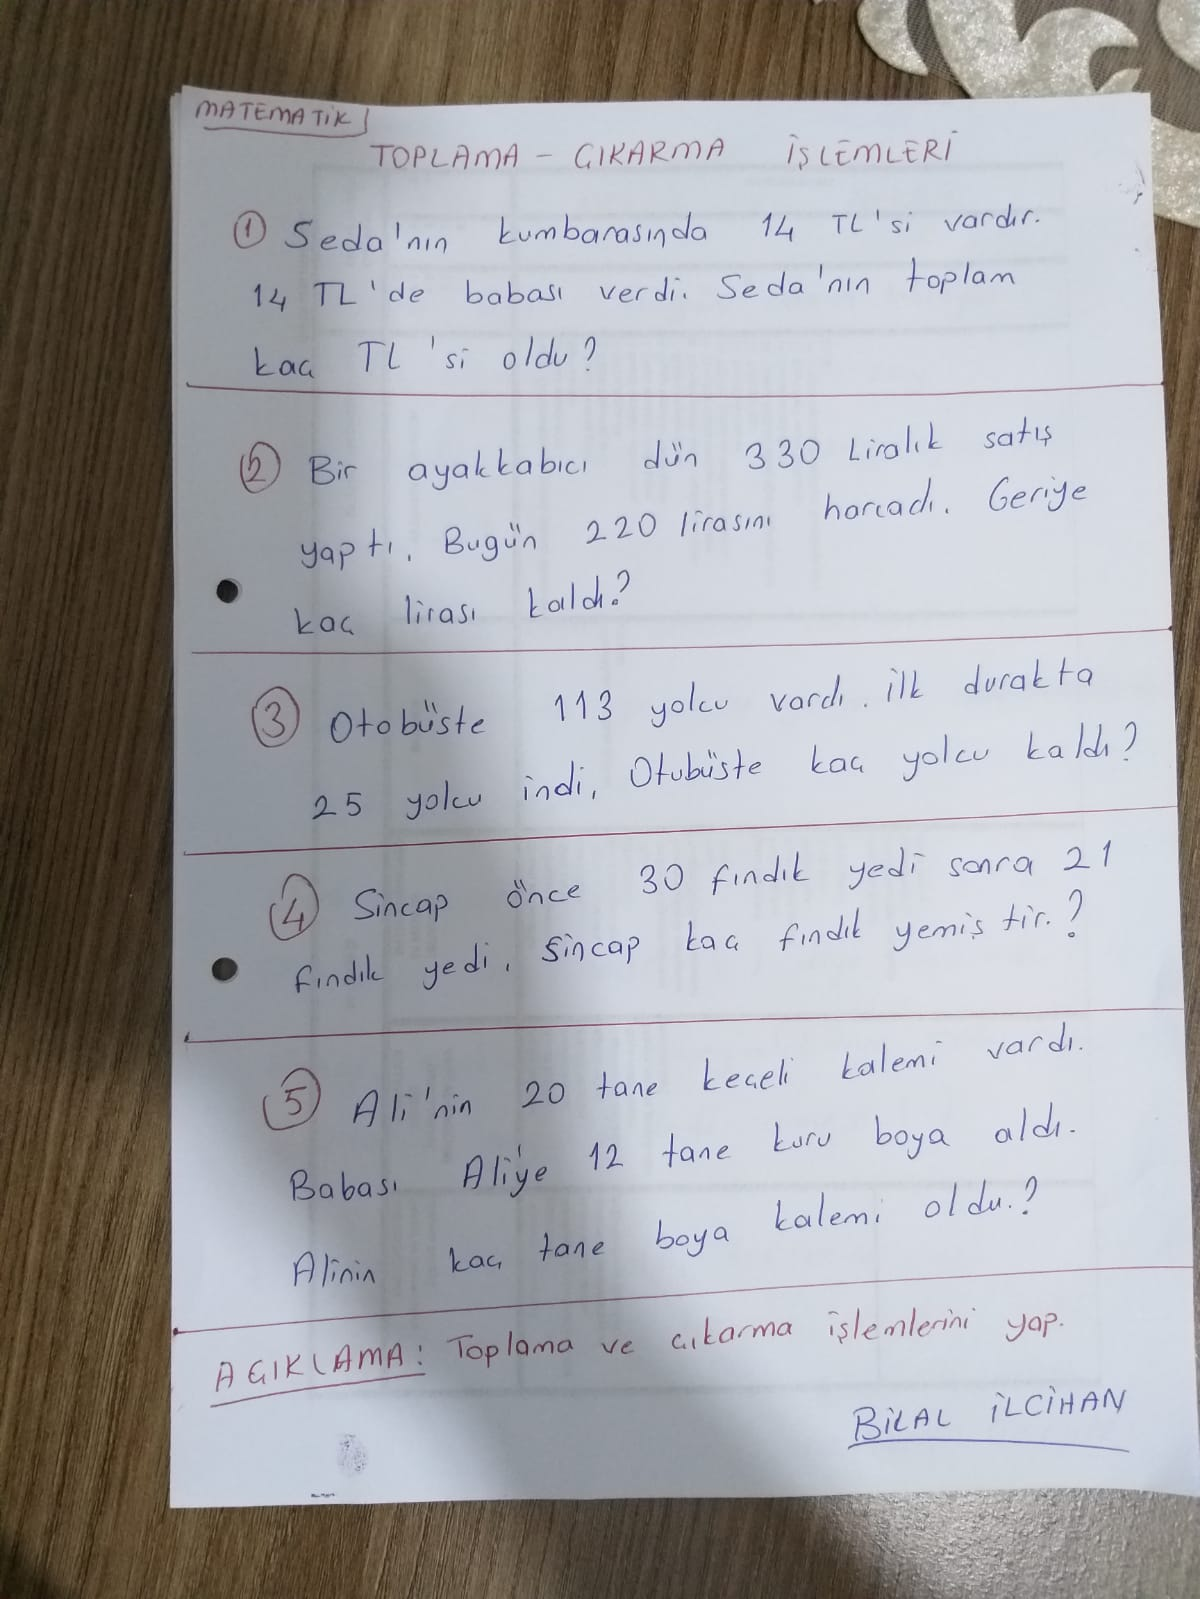 MATEMATİK
TOPLAMA - ÇIKARMA İŞLEMLERİ
1 Seda'nın kumbarasında 14 TL'si vardır.
14 TL'de babası verdi. Seda'nın toplam
kaç TL'si oldu?
2 Bir ayakkabıcı dün 330 Liralık satış
yaptı. Bugün 220 lirasını harcadı. Geriye
kaç lirası kaldı?
3 Otobüste 113 yolcu vardı. İlk durakta
25 yolcu indi, Otubüste kaç yolcu kaldı?
4 Sincap önce 30 fındık yedi sonra 21
fındık yedi, Sincap kaç fındık yemiştir.?
5 Ali'nin 20 tane keçeli kalemi vardı.
Babası Ali'ye 12 tane kuru boya aldı.
Alinin kaç tane boya kalemi oldu.?
AÇIKLAMA: Toplama ve çıkarma işlemlerini yap.
BİLAL İLCİHAN